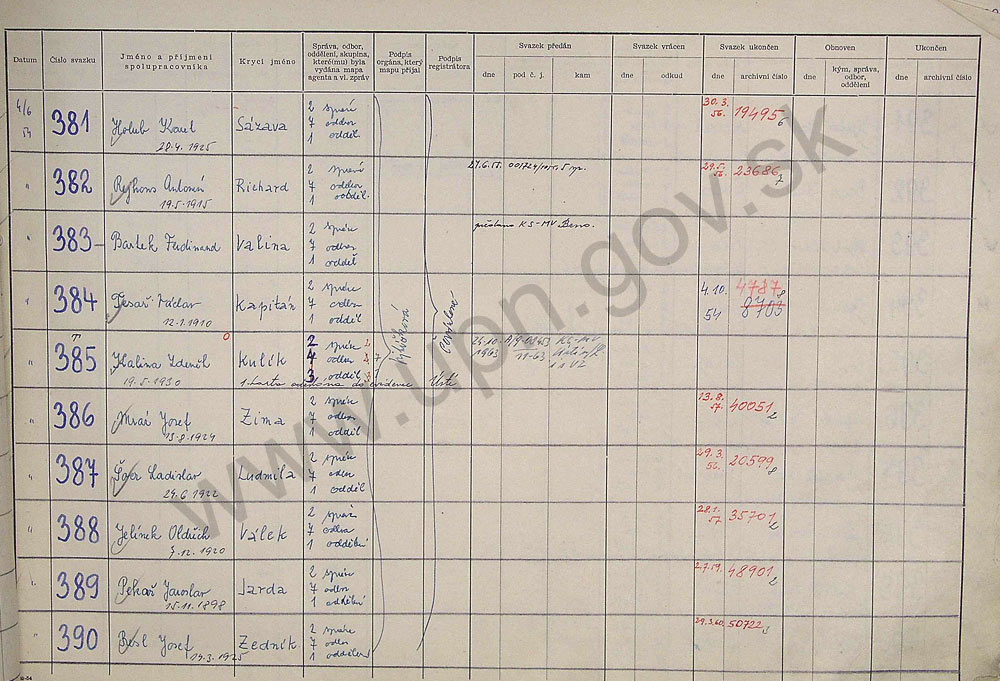 Datum
Číslo svazku
Jméno a příjmení spolupracovníka
Krycí jméno
Správa, odbor, oddělení, skupina, které(mu) byla vydána mapa agenta a vl. zpráv
Podpis orgána, který mapu přijal
Podpis registrátora
Svazek předán
dne
pod č. j.
kam
Svazek vrácen
dne
odkud
Svazek ukončen
dne
archivní číslo
Obnoven
dne
kým, správa, odbor, oddělení
Ukončen
dne
archivní číslo
4/6 54
381
Holub Karel
28.4.1925
Sázava
2 správa
7 odbor
1 odděl.
30.3. 56.
19495 6
"
382
Antonín
19.5.1915
Richard
2 správa
7 odbor
1 odděl.
29.5. 56.
23686 7
"
383
Bartek Ferdinand
Valina
2 správa
7 odbor
1 odděl
předáno KS-MV Brno.
"
384
Tesař Václav
12.1.1910
Kapitán
2 správa
7 odbor
1 odděl
4.10. 54
4787 8
8103
"
385
Kalina Zdeněk
19.5.1930
Kulík
2 správa
4 odbor
3 odděl
26.10. 1963
"
386
Josef
Zima
2 správa
7 odbor
1 odděl
13.8. 57.
40051 2
"
387
Ladislav
24.6.1922
Ludmila
2 správa
7 odbor
1 odděl
29.3. 56.
20599 8
"
388
Jelínek Oldřich
7.12.1920
Válek
2 správa
7 odbor
1 oddělení
28.1. 57
35701 2
"
389
Pekař Jaroslav
15.11.1898
Jarda
2 správa
7 odbor
1 oddělení
48901 2
"
390
Josef
Zedník
2 správa
7 odbor
1 oddělení
29.3.60.
50722 3
www.upn.gov.sk